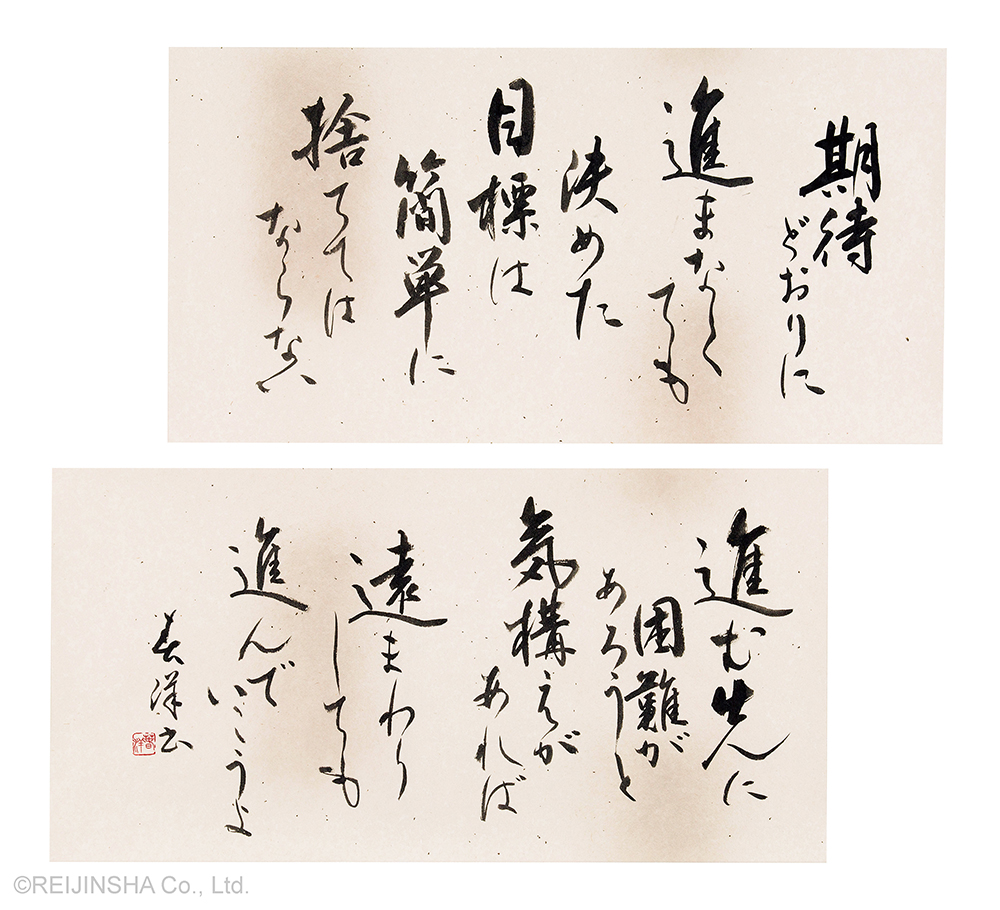 期待
どおりに
進まなく
ても
決めた
目標は
簡単に
捨てては
ならない
進む先に
困難が
あろうと
気構えが
あれば
遠まわり
しても
進んで
いこうよ
©REIJINSHA Co., Ltd.